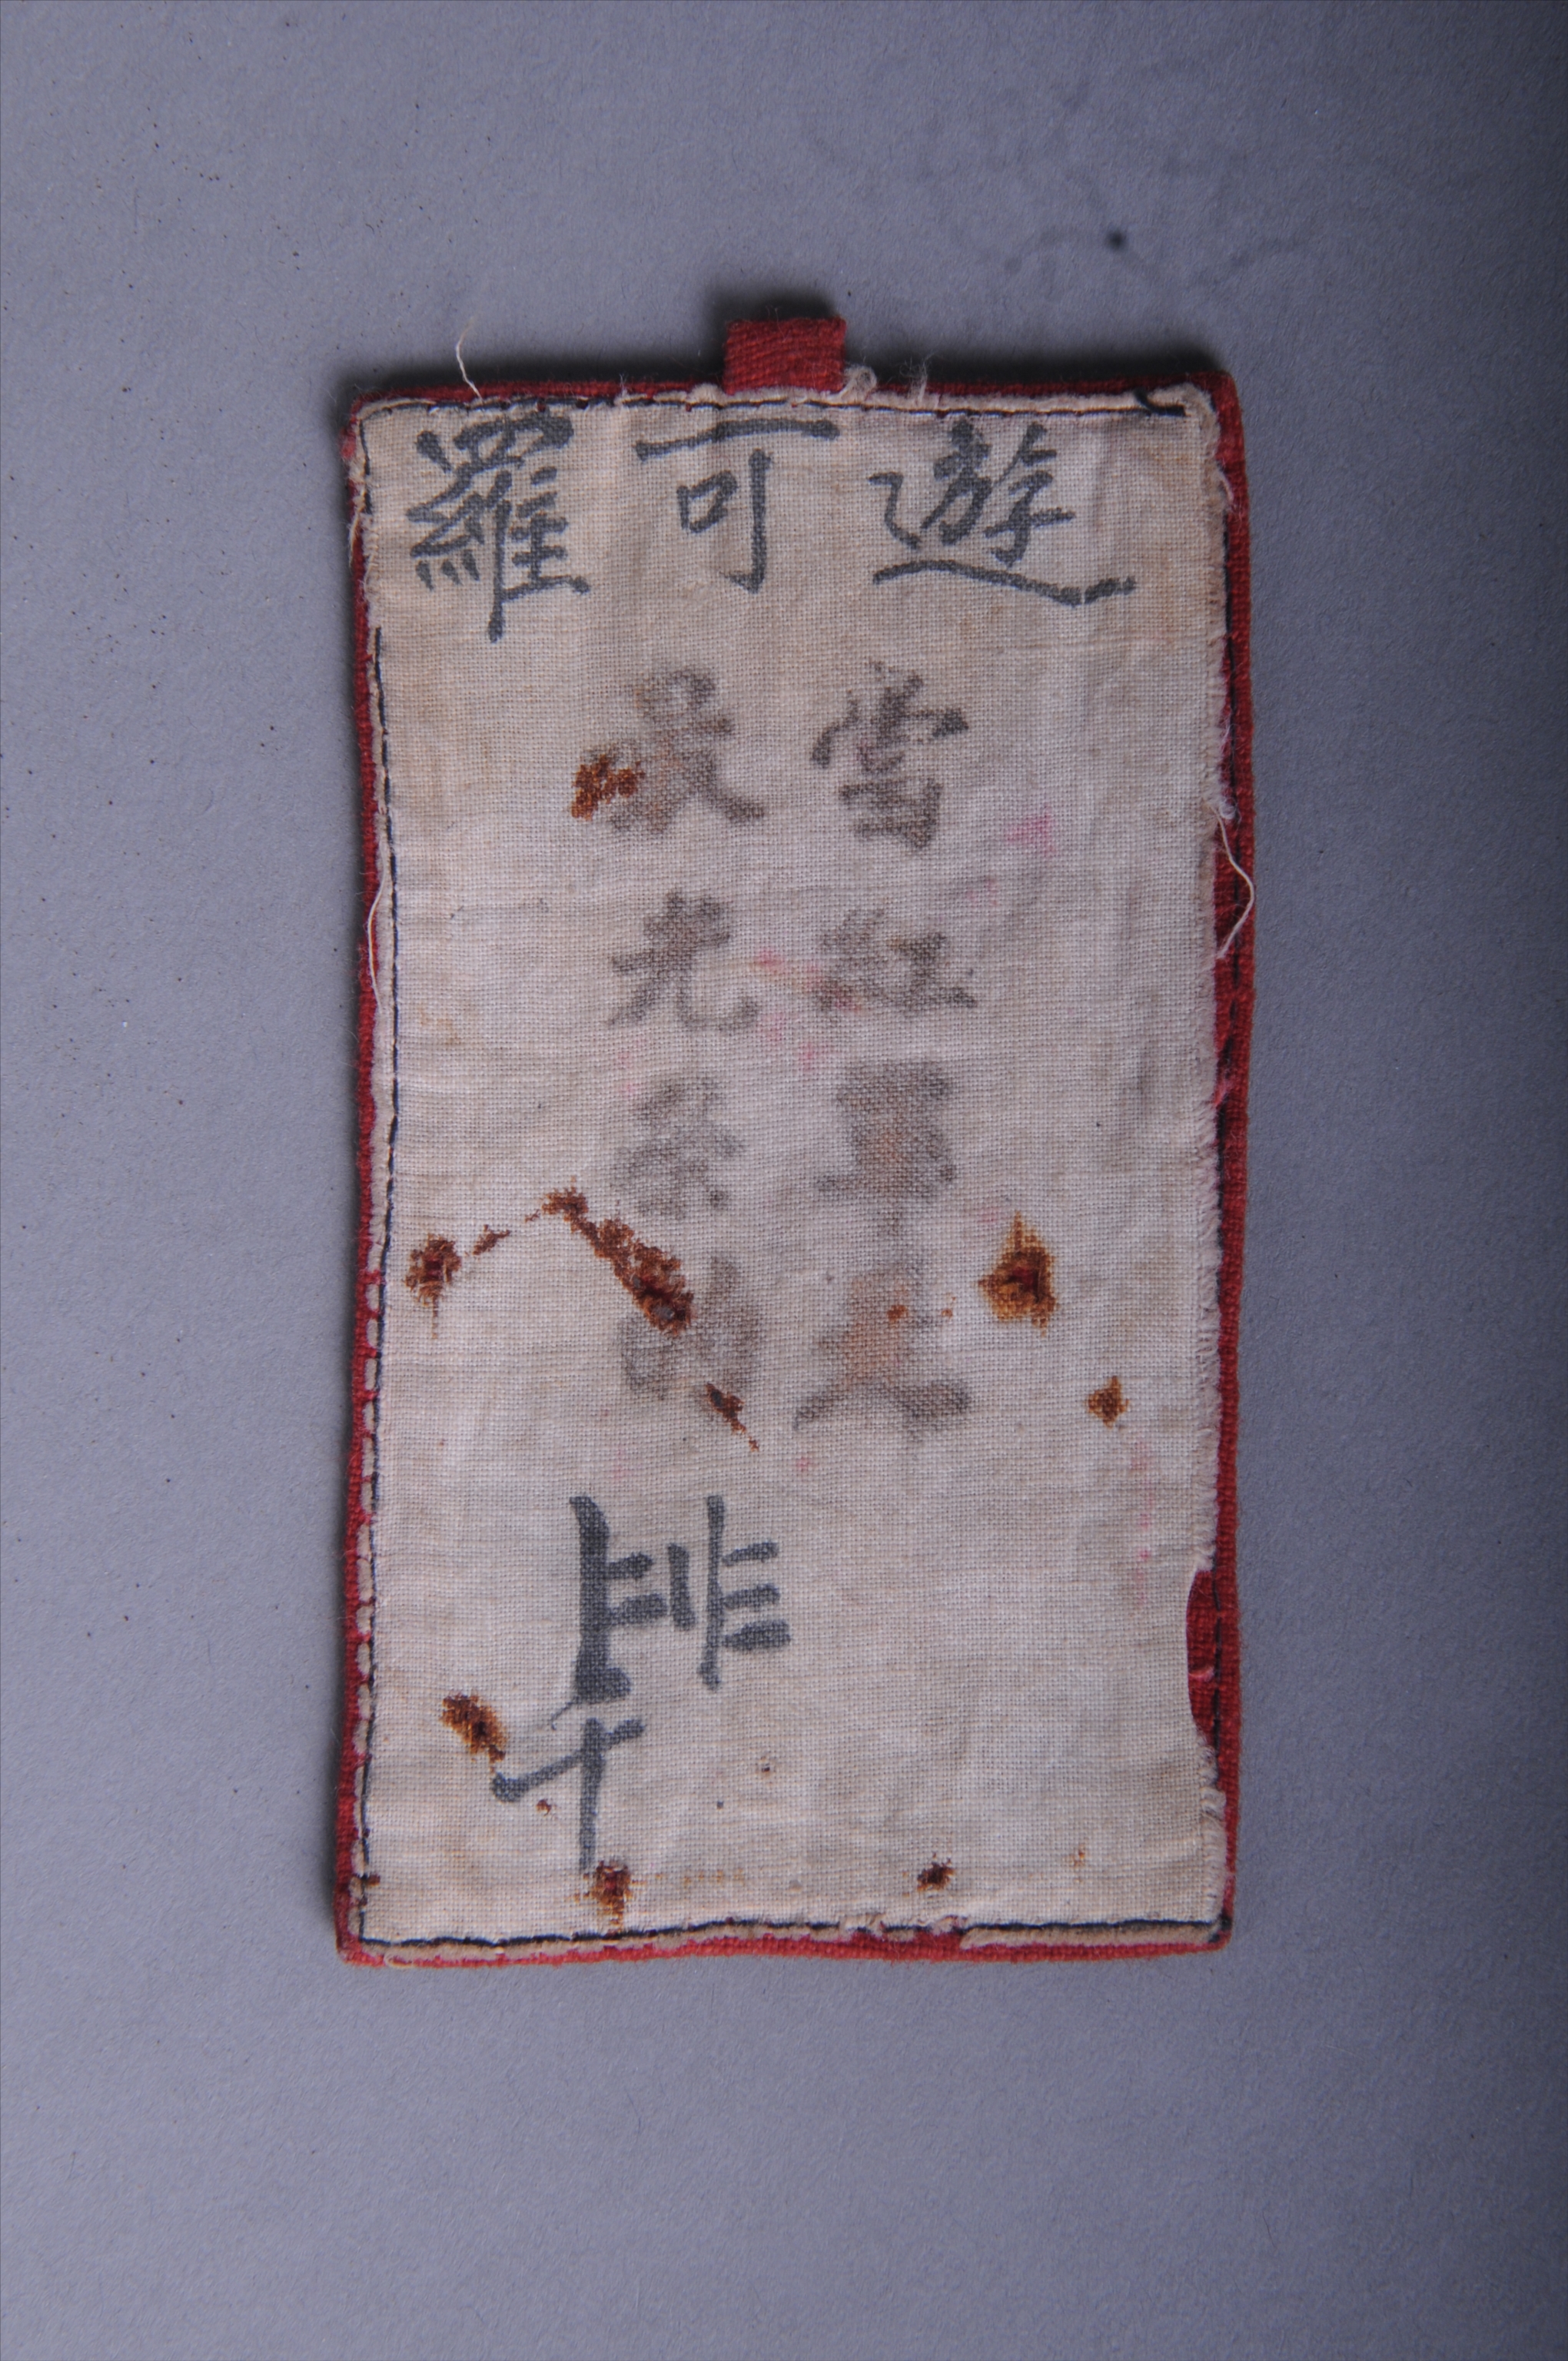 遊可羅
當紅軍是
最光榮的